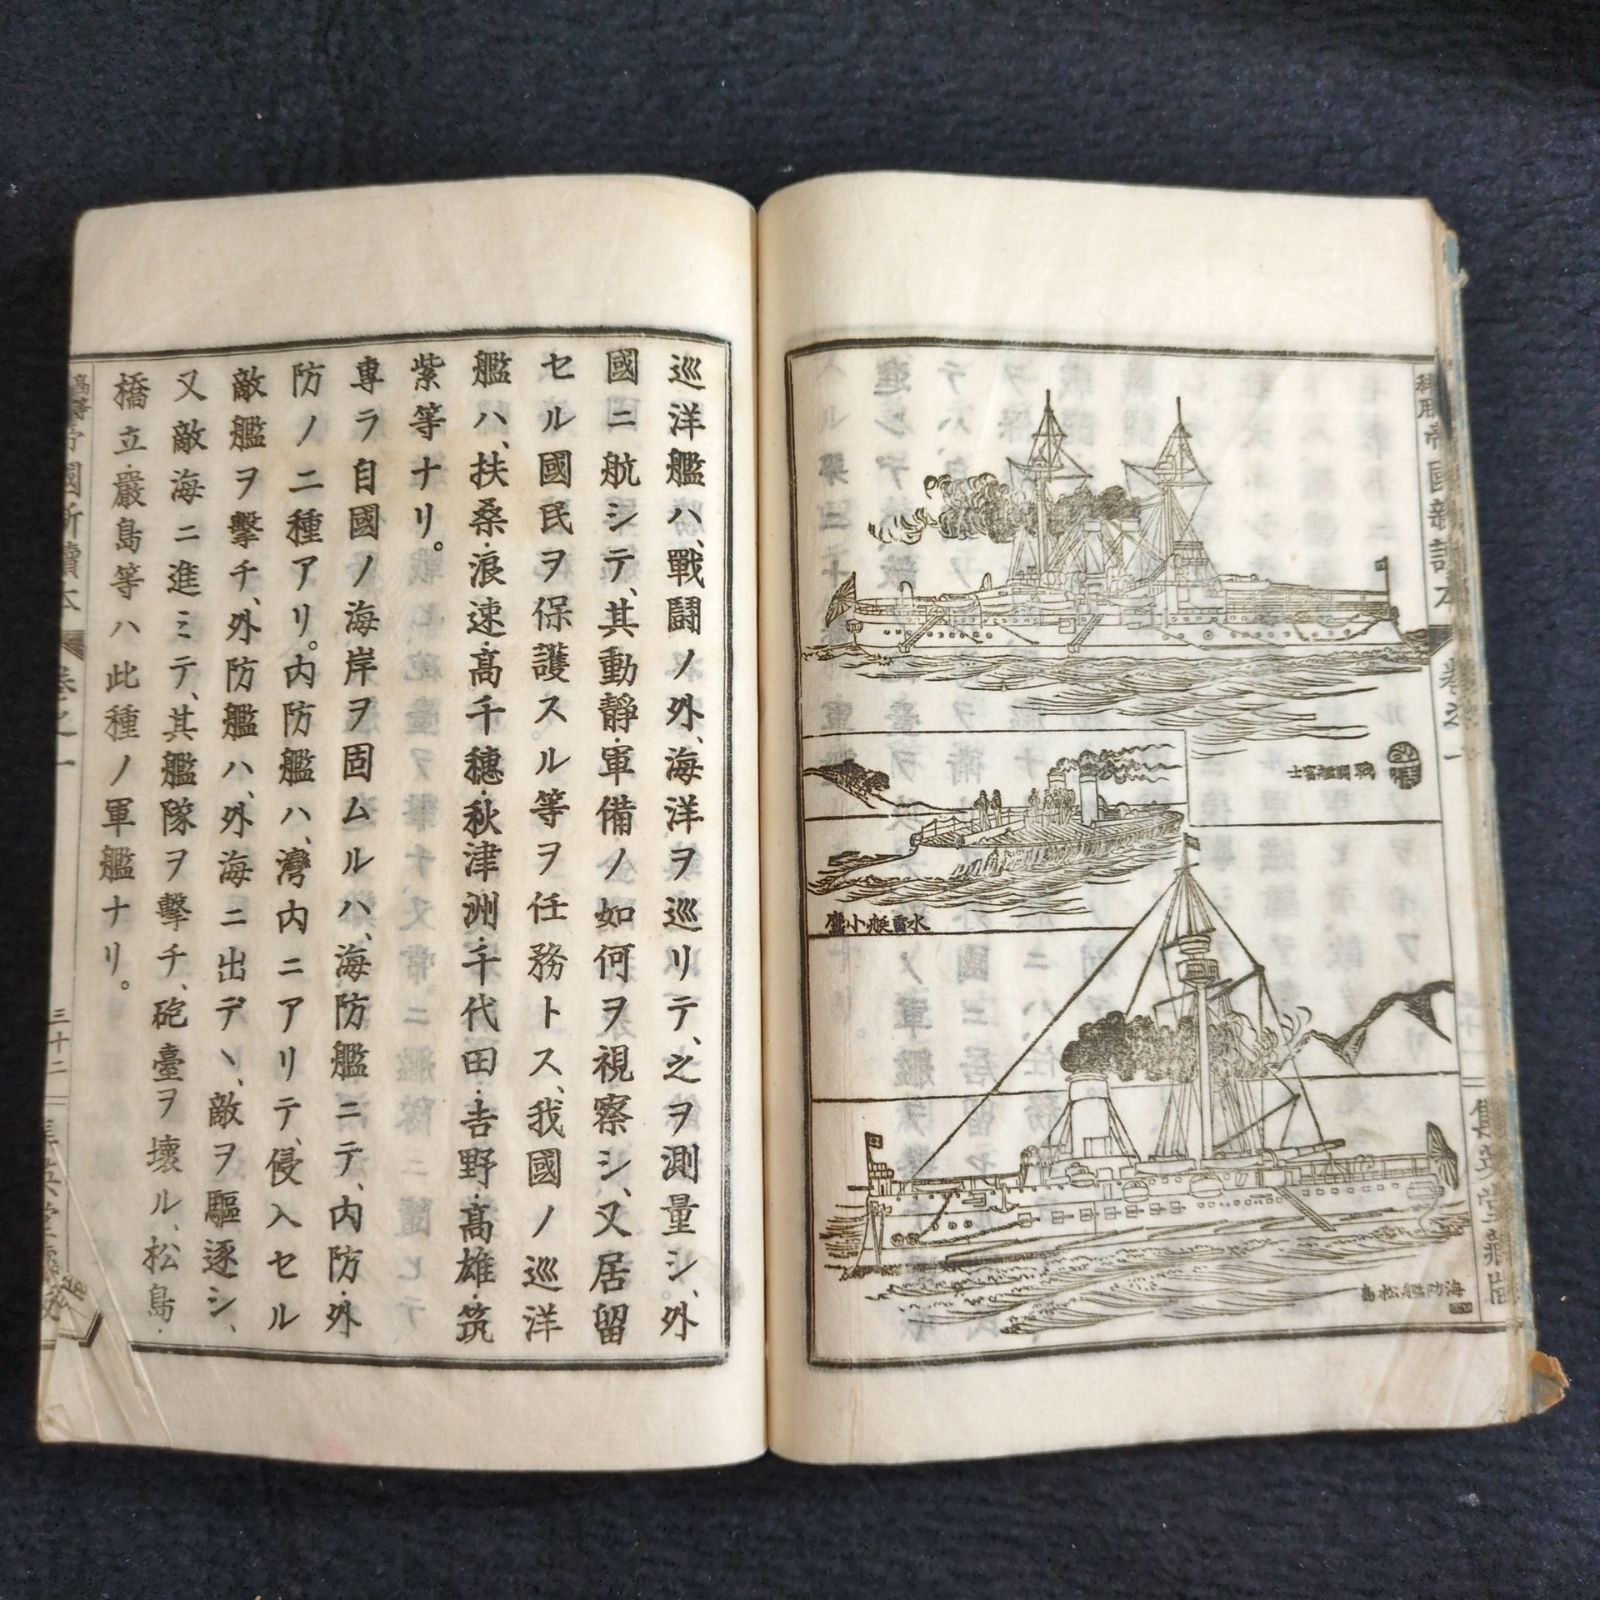 帝國新讀本 卷之一
戰鬪艦富士
水雷艇小鷹
海防艦松島
集英堂藏版
巡洋艦ハ、戰鬪ノ外、海洋ヲ巡リテ、之ヲ測量シ、外
國ニ航シテ、其動靜・軍備ノ如何ヲ視察シ、又居留
セル國民ヲ保護スル等ヲ任務トス、我國ノ巡洋
艦ハ、扶桑・浪速・高千穗・秋津洲・千代田・吉野・高雄・筑
紫等ナリ。
專ラ自國ノ海岸ヲ固ムルハ、海防艦ニテ、内防・外
防ノ二種アリ。内防艦ハ、灣内ニアリテ、侵入セル
敵艦ヲ擊チ、外防艦ハ、外海ニ出デヽ、敵ヲ驅逐シ、
又敵海ニ進ミテ、其艦隊ヲ擊チ、砲臺ヲ壞ル、松島・
橋立・嚴島等ハ此種ノ軍艦ナリ。
高等帝國新讀本 卷之一
三十二